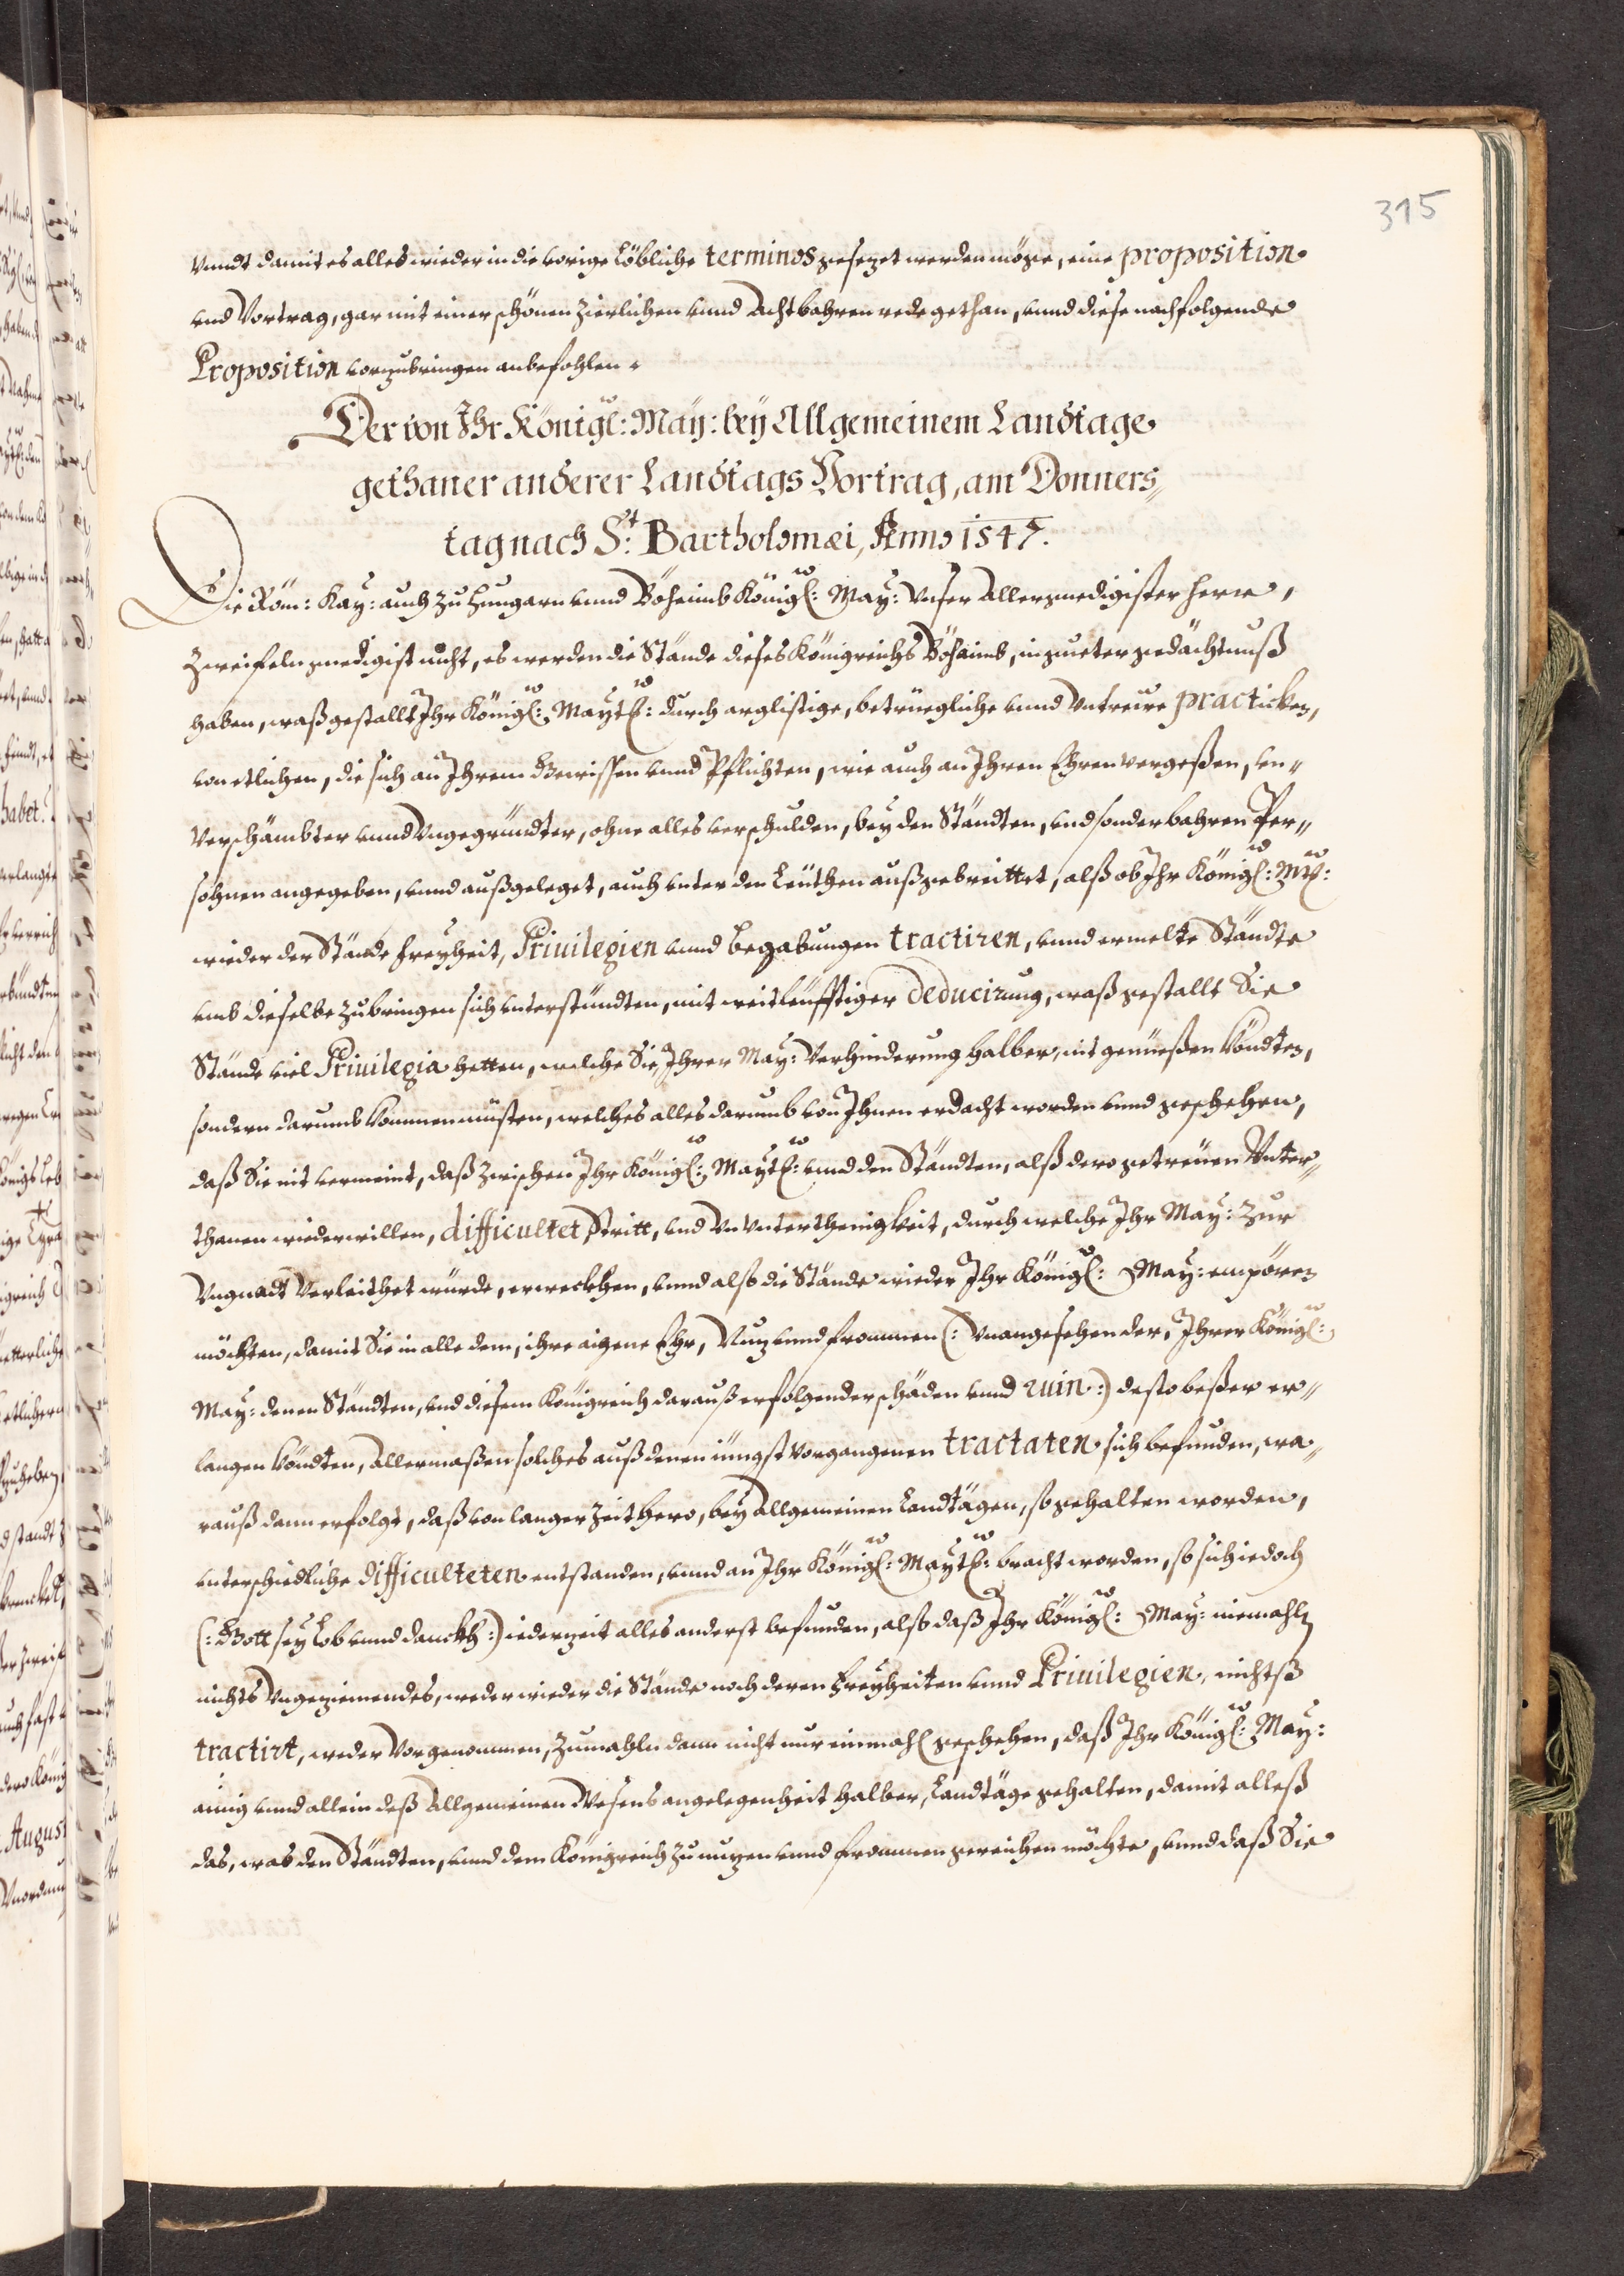 315
vnndt damit es alles wieder in die vorige löbliche terminos gesezet werden möge, eine proposition
vnd Vortrag, gar mit einer schönen zierlichen vnnd Achtbahren rede gethan, vnnd diese nachfolgende
Proposition vorzubringen anbefohlen.
Der von Ihr Königl: May: bey Allgemeinem Landtage
gethaner anderer Landtags Vortrag, am Donners„
tag nach St: Bartholomæi, Anno 1547.
Die Röm: Kay: auch zu Hungarn vnnd Böheimb Königl: May: Vnser Allergnedigister Herr,
Zweifeln gnedigist nicht, es werden die Stände dieses Königreichs Böhaimb, in gueter gedächtnuß
haben, waß gestallt Ihr Königl: Maytl: durch arglistige, betrüegliche vnnd Vntreüe practicken,
von etlichen, die sich an Ihrem Gewissen vnnd Pflichten, wie auch an Ihren Ehren vergeßen, vn„
Verschämbter vnnd Vngegründter, ohne alles verschulden, bey den Ständten, vnd sonderbahren Per„
sohnen angegeben, vnnd außgeleget, auch vnter den Leüthen außgebreittet, alß ob Ihr Königl: Mtl:
wieder der Stände freyheit, Priuilegien vnnd begabungen tractiren, vnnd ermelte Ständte
vmb dieselbe zubringen sich vnterstündten, mit weitleüfftiger deducirung, waß gestallt Sie
Stände viel Priuilegia hetten, welche Sie, Ihrer May: Verhinderung halber, nit genüeßen köndten,
sondern darumb kommen müsten, welches alles darumb von Ihnen erdacht worden vnnd geschehen,
daß Sie nit vermeint, daß zwischen Ihr Königl: Maytl: vnnd den Ständten, alß dero getreüen Vnter„
thanen wiederwillen, difficultet, Stritt, vnd Vnvnterthenigkeit, durch welche Ihr May: zur
Vngnadt Verleithet würde, erweckhen, vnnd also die Stände wieder Ihr Königl: May: empören
möchten, damit Sie in alle dem, ihre aigene Ehr, Nuz vnnd frommen (: Vnangesehen der, Ihrer Königl:
May: denen Ständten, vnd diesem Königreich darauß erfolgender schäden vnnd ruin :) desto beßer er„
langen köndten, Allermaßen solches auß denen iüngst vorgangenen tractaten sich befunden, wa„
rauß dann erfolgt, daß von langer Zeit hero, bey Allgemeinen Landtägen, so gehalten worden,
vnterschiedliche difficulteten entstanden, vnnd an Ihr Königl: Maytl: bracht worden, so sich iedoch
(: Gott sey lob vnnd danckh :) iederzeit alles anderst befunden, also daß Ihr Königl: May: niemahls
nichts Vngeziemendes, weder wieder die Stände noch deren Freyheiten vnnd Priuilegien, nichtß
tractirt, weder Vorgenommen, Zumahln dann nicht nur einmahl geschehen, daß Ihr Königl: May:
ainig vnnd allein deß Allgemeinen Wesens angelegenheit halber, Landtäge gehalten, damit alleß
das, was den Ständten, vnnd dem Königreich zu nuzen vnnd frommen gereichen möchte, vnnd daß Sie